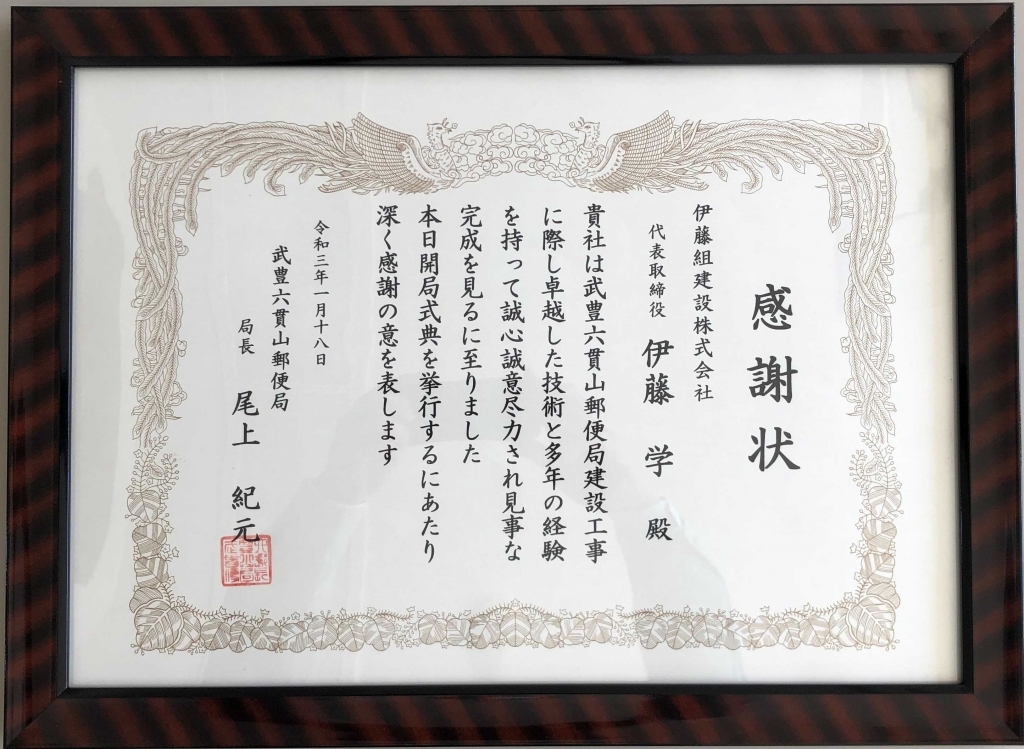 感謝状
伊藤組建設株式会社
代表取締役 伊藤 学 殿
貴社は武豊六貫山郵便局建設工事
に際し卓越した技術と多年の経験
を持って誠心誠意尽力され見事な
完成を見るに至りました
本日開局式典を挙行するにあたり
深く感謝の意を表します
令和三年一月十八日
武豊六貫山郵便局
局長 尾上 紀元